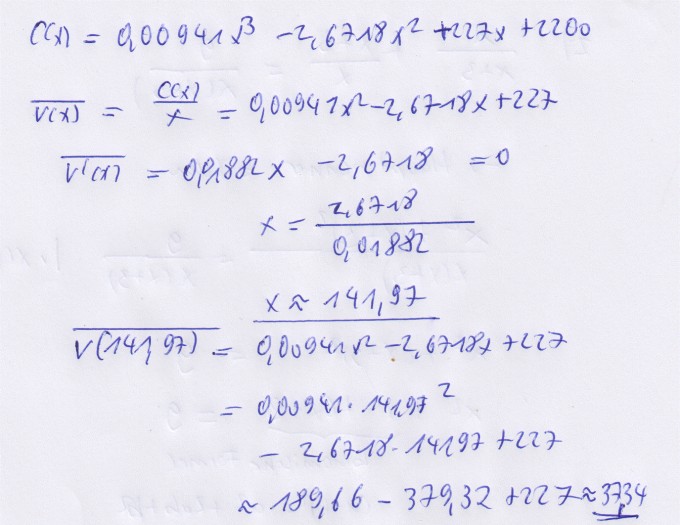 C(x) = 0,00941x³ - 2,6718x² + 227x + 2200
V(x) = C(x)/x = 0,00941x² - 2,6718x + 227
V'(x) = 0,01882x - 2,6718 = 0
x = 2,6718/0,01882
x ≈ 141,97
V(141,97) = 0,00941x² - 2,6718x + 227
= 0,00941 · 141,97²
- 2,6718 · 141,97 + 227
≈ 189,66 - 379,32 + 227 ≈ 37,34